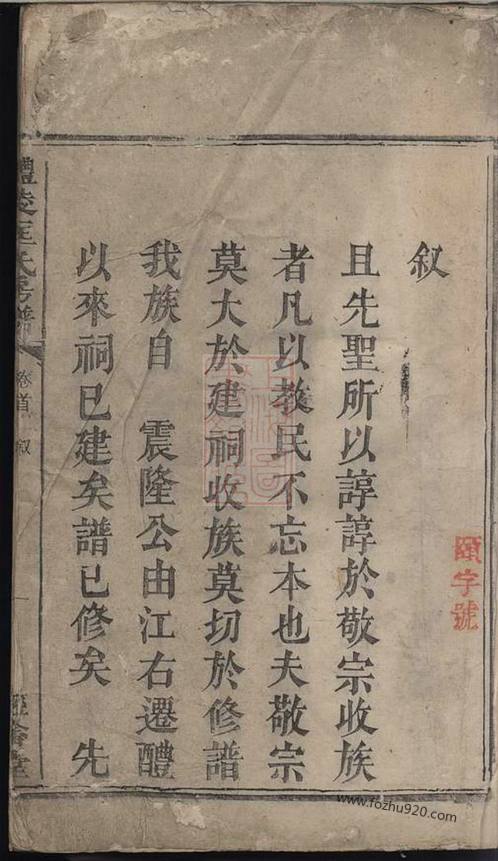 叙
且先聖所以諄諄於敬宗收族
者凡以教民不忘本也夫敬宗
莫大於建祠收族莫切於修譜
我族自　震隆公由江右遷醴
以來祠已建矣譜已修矣　先
醴陵匡氏房譜
卷首
叙
頤字號
www.fozhu920.com